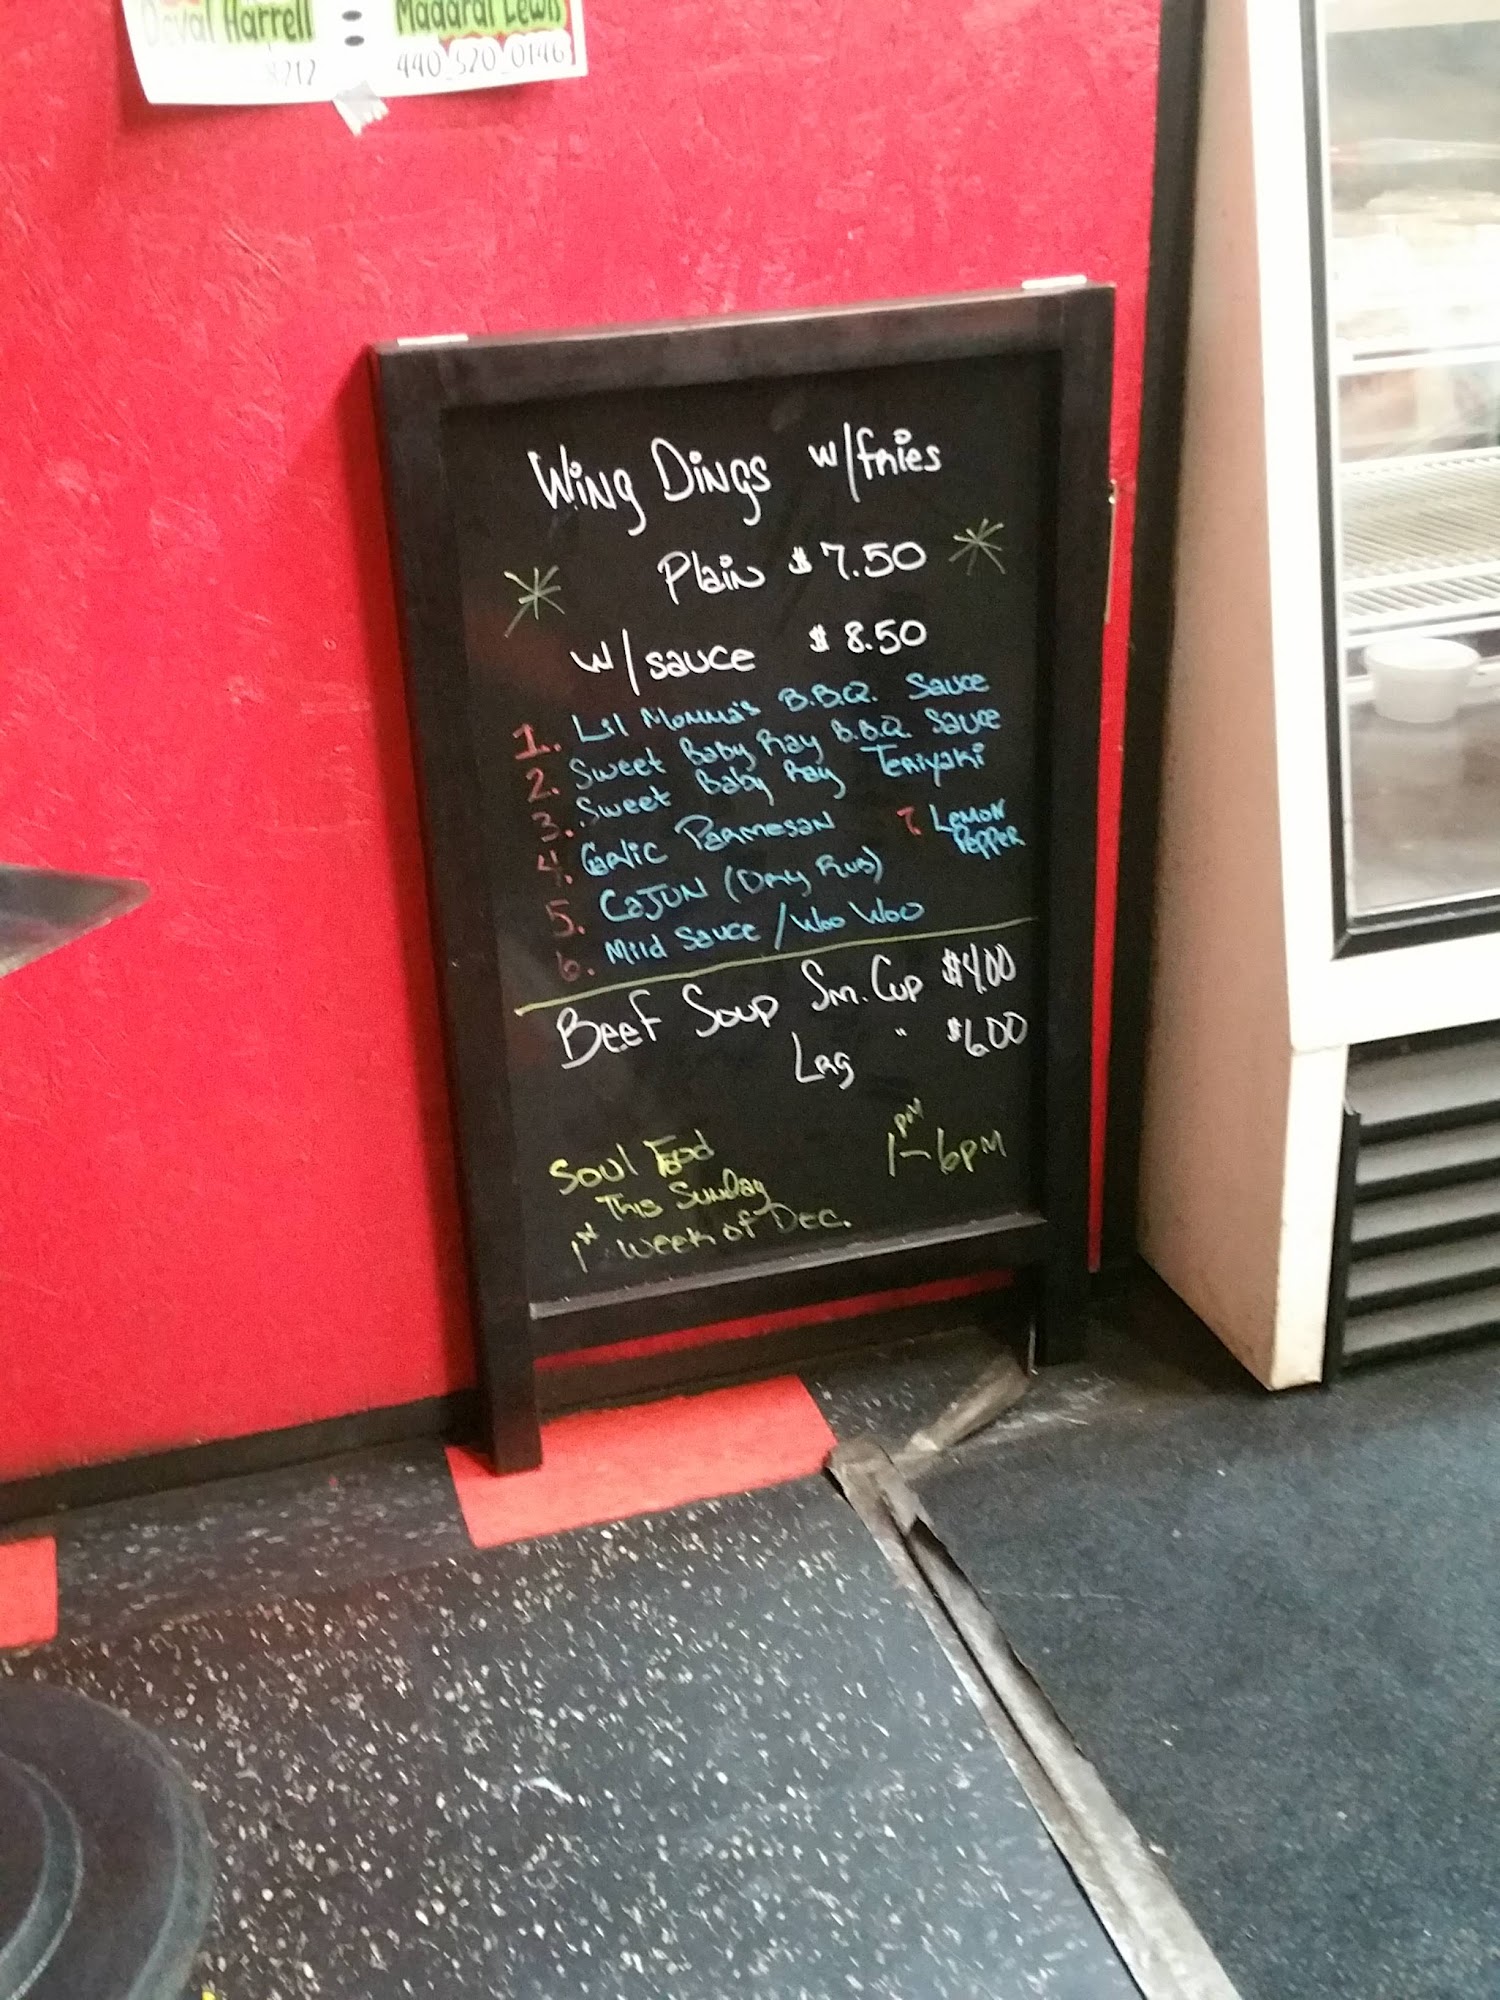 Harrell : Madaral Lewis
8212 440_520_0146
Wing Dings w/fries
Plain $7.50
w/sauce $8.50
1. Lil Momma's B.B.Q. Sauce
2. Sweet Baby Ray B.B.Q. Sauce
3. Sweet Baby Ray Teriyaki
4. Garlic Parmesan
5. Cajun (Dry Rub)
6. Mild Sauce / Woo Woo
7. Lemon
Pepper
Beef Soup Sm. Cup $4.00
Lrg " $6.00
Soul Food
This Sunday
1st week of Dec.
1pm-6pm